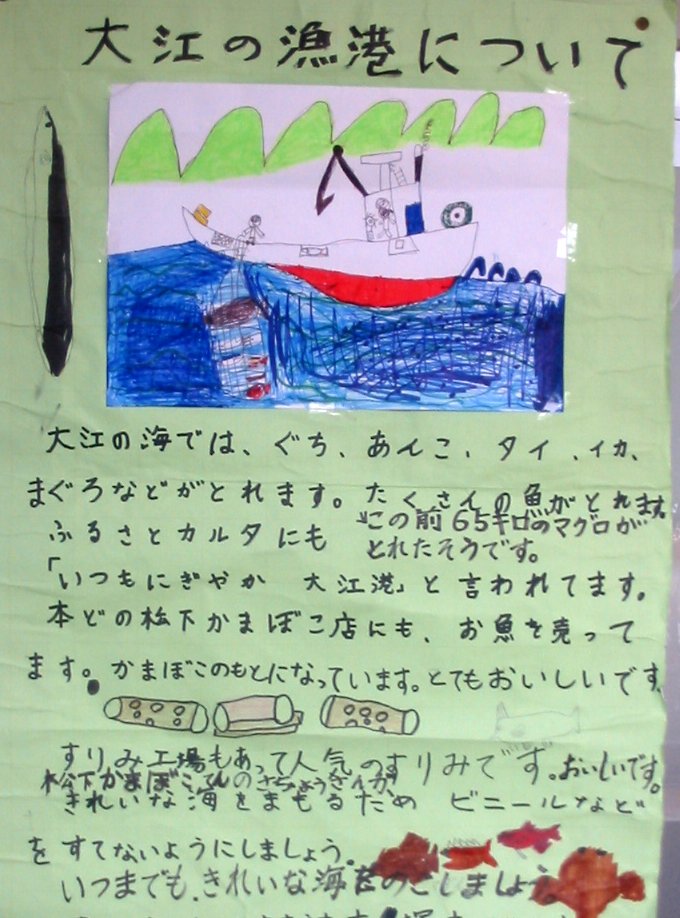 大江の漁港について
大江の海では、ぐち、あんこ、タイ、イカ、
まぐろなどがとれます。たくさんの魚がとれます。
この前65キロのマグロが
とれたそうです。
ふるさとカルタにも
「いつもにぎやか 大江港」と言われてます。
本どの松下かまぼこ店にも、お魚を売って
ます。かまぼこのもとになっています。とてもおいしいです
すりみ工場もあって人気のすりみです。おいしいです。
松下かまぼこてんの
きれいな海をまもるため ビニールなど
をすてないようにしましょう。
いつまでも、きれいな海をのこしましょう。